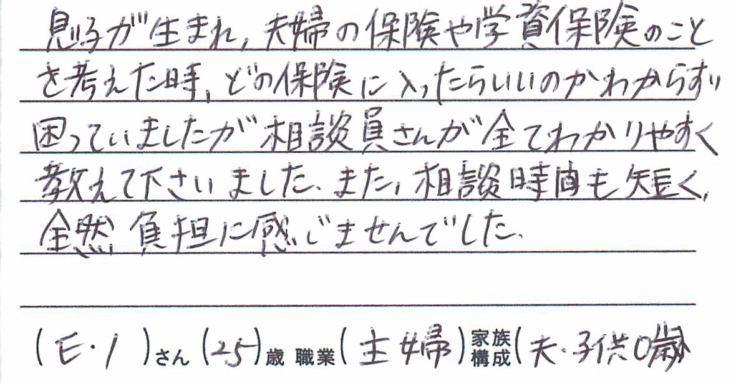 息子が生まれ,夫婦の保険や学資保険のこと
を考えた時,どの保険に入ったらいいのかわからず
困っていましたが相談員さんが全てわかりやすく
教えて下さいました.また,相談時間も短く,
全然負担に感じませんでした.
(E・I)さん(25)歳 職業(主婦)家族構成(夫・子供0歳)